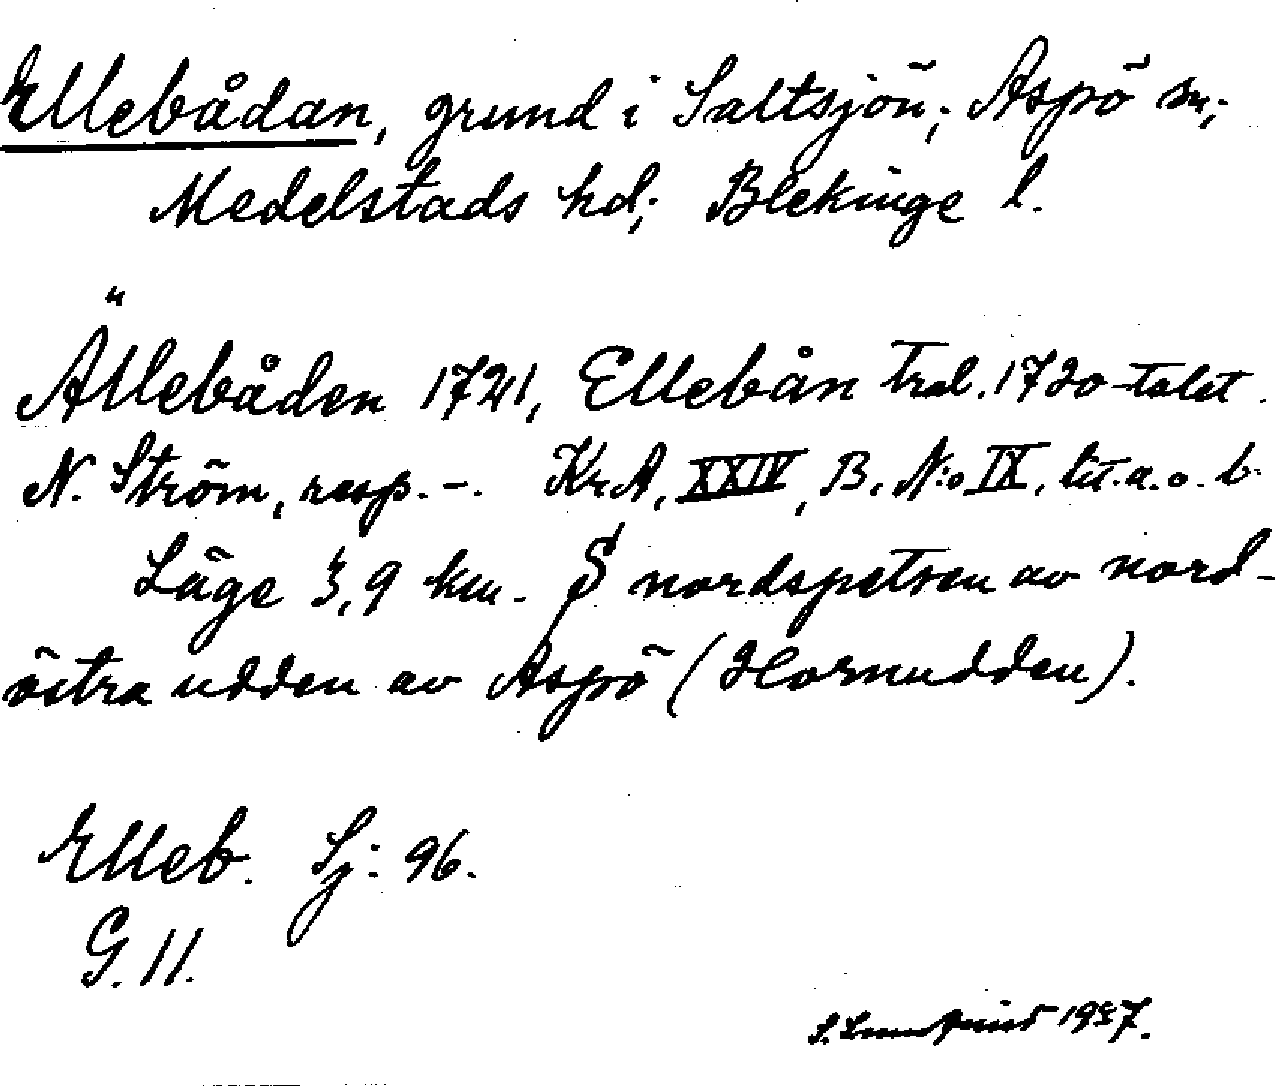 Ellebådan, grund i Saltsjön; Aspö sn;
Medelstads hd; Blekinge l.
Ällebåden 1721, Ellebån trol. 1720-talet.
N. Ström, resp. -. KrA, XXIV, B. N:o IX, lit. a. o. b.
Läge 3,9 km. S nordspetsen av nord-
östra udden av Aspö (Hornudden).
Elleb. Sj: 96.
G. 11.
1957.